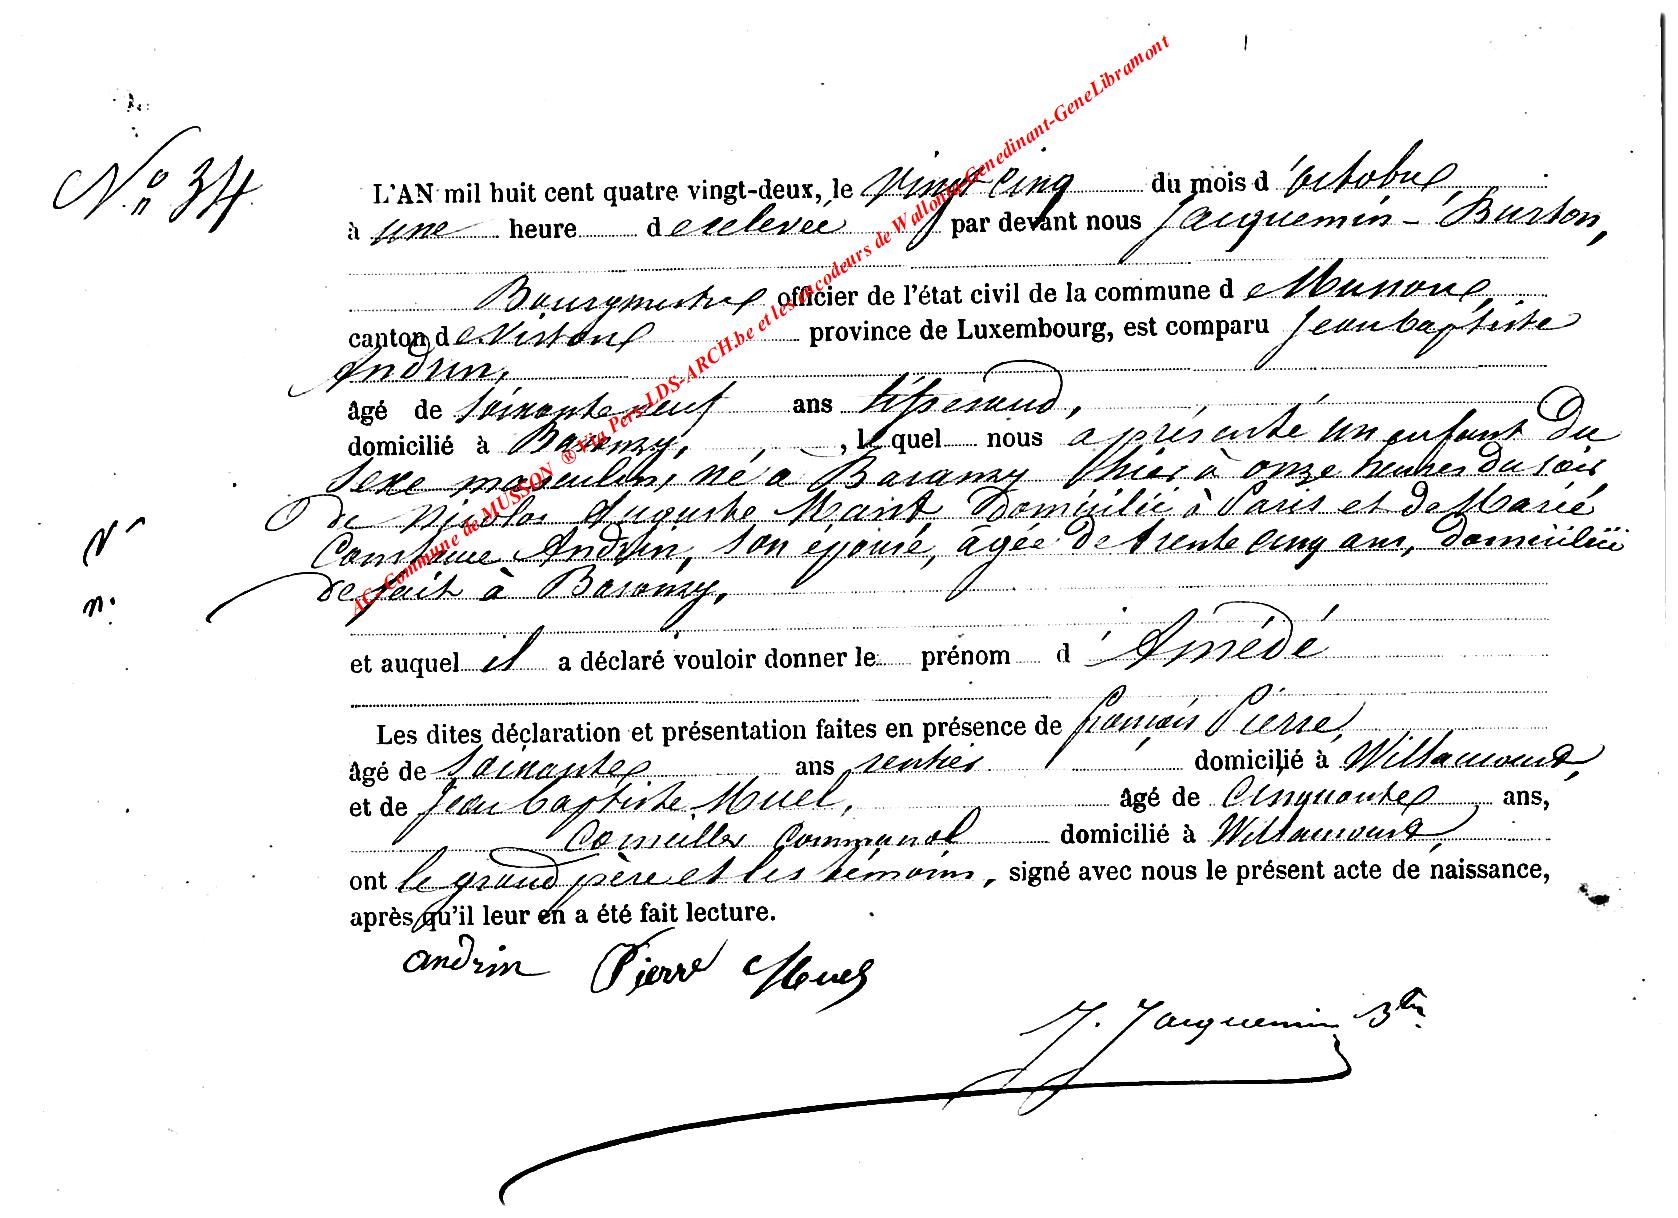 N° 34
L'AN mil huit cent quatre vingt-deux, le vingt cinq du mois d'octobre
à une heure de relevée par devant nous Jacquemin - Burton,
Bourgmestre officier de l'état civil de la commune de Musson
canton de Virton province de Luxembourg, est comparu Jean baptiste
Andrin,
âgé de soixante neuf ans tisserand,
domicilié à Baranzy, , lequel nous a présenté un enfant du
sexe masculin, né à Baranzy hier à onze heures du soir
de Nicolas Auguste domicilié à Paris et de Marie
Constance Andrin, son épouse, agée de trente cinq ans, domiciliée
de fait à Baranzy,
et auquel il a déclaré vouloir donner le prénom d'Amédé
Les dites déclaration et présentation faites en présence de françois Pierre,
âgé de soixante ans rentier domicilié à Willancourt,
et de Jean baptiste Muel, âgé de cinquante ans,
Conseiller Communal domicilié à Willancourt,
ont le grand père et les témoins, signé avec nous le présent acte de naissance,
après qu'il leur en a été fait lecture.
andrin Pierre Muel
J. Jacquemin Btn
AC-Commune de MUSSON ® Via Pers-LDS-ARCH.be et les encodeurs de Wallonia-Genedinant-GeneLibramont